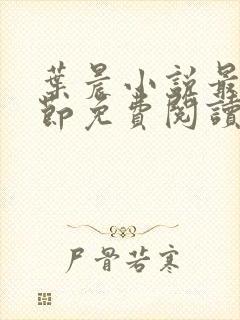 葉晨小說最
節免費閱讀
尸骨若寒